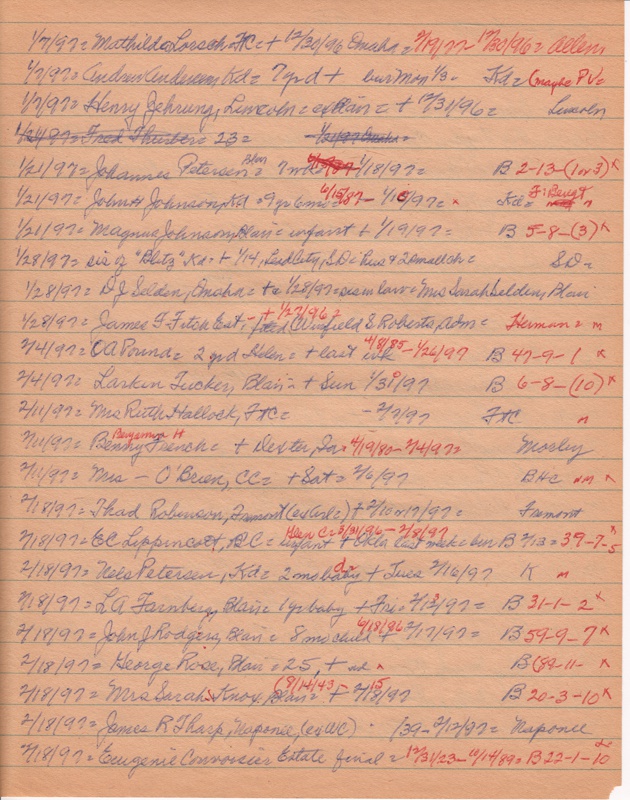 1/7/97 = Mathilda Lorsch, FtC = + 12/30/96 Omaha = 2/19/77 - 12/30/96 = Allen
1/7/97 = Andrew Andersen, Kd = 7 yr d + bur Mon 1/3 = Kd = (maybe PV =
1/7/97 = Henry Jehrung, Lincoln = exBlair = + 12/31/96 = Lincoln
1/21/97 = Fred Thurber = 23 = 1/21/97 Omaha =
1/21/97 = Johannes Petersen = Blair 7 wks 1/18/97 = B 2-13-(1 or 3) x
1/21/97 = John H Johnson, Kd = 9 yr 6 mo = 6/15/87 - 1/10/97 = x Kd =
1/21/97 = Magnus Johnson, Blair = infant + 1/19/97 = B 5-8-(3) x
1/28/97 = sis of "Blotz" Kd = + 1/14, Lead City, SD = hus & 2 small ch = SD =
1/28/97 = D J Selden, Omaha = + 1/28/97 = sis in law = Mrs Sarah Selden, Blair
1/28/97 = James G Fitch Est, - + 1/27/96 = Winfield S Roberts, adm = Herman = m
2/4/97 = CA Pound = 2 yr d Helen = + last wk 4/8/85 - 1/26/97 B 47-9-1 x
2/4/97 = Larkin Tucker, Blair = + Sun 1/31/97 B 6-8-(10) x
2/11/97 = Mrs Ruth Hallock, FtC = - 2/7/97 FtC m
2/11/97 = Benny French = Benjamin H + Dexter, Ia = 4/19/80 - 2/4/97 = Mosley
2/11/97 = Mrs - O'Brien, CC = + Sat = 2/6/97 BHC nm x
2/18/97 = Thad Robinson, Fremont (exArl =) + 2/16 or 17/97 = Fremont
2/18/97 = EC Lippincott, DC = Glen C = 3/31/96 - 2/8/97 infant + Okla last week = bur B 2/13 = 39-7-5 x
2/18/97 = Nels Petersen, Kd = 2 mo baby da + Tues 2/16/97 K m
2/18/97 = L A Farnberg, Blair = 1 yr baby + Fri = 2/12/97 = B 31-1-2 x
2/18/97 = John J Rodgers, Blair = 8 mo child + 6/18/96 2/17/97 = B 59-9-7 x
2/18/97 = George Rose, Blair = 25, + nd x B (89-11- x
2/18/97 = Mrs Sarah Knox, Blair = (8/14/43 - + 2/15/97 B 20-3-10 x
2/18/97 = James R Tharp, Naponee, (exWC) - (39 - 2/12/97 = Naponee
2/18/97 = Eugenie Convoisier Estate final = 12/31/23 - 10/14/89 = B 22-1-10